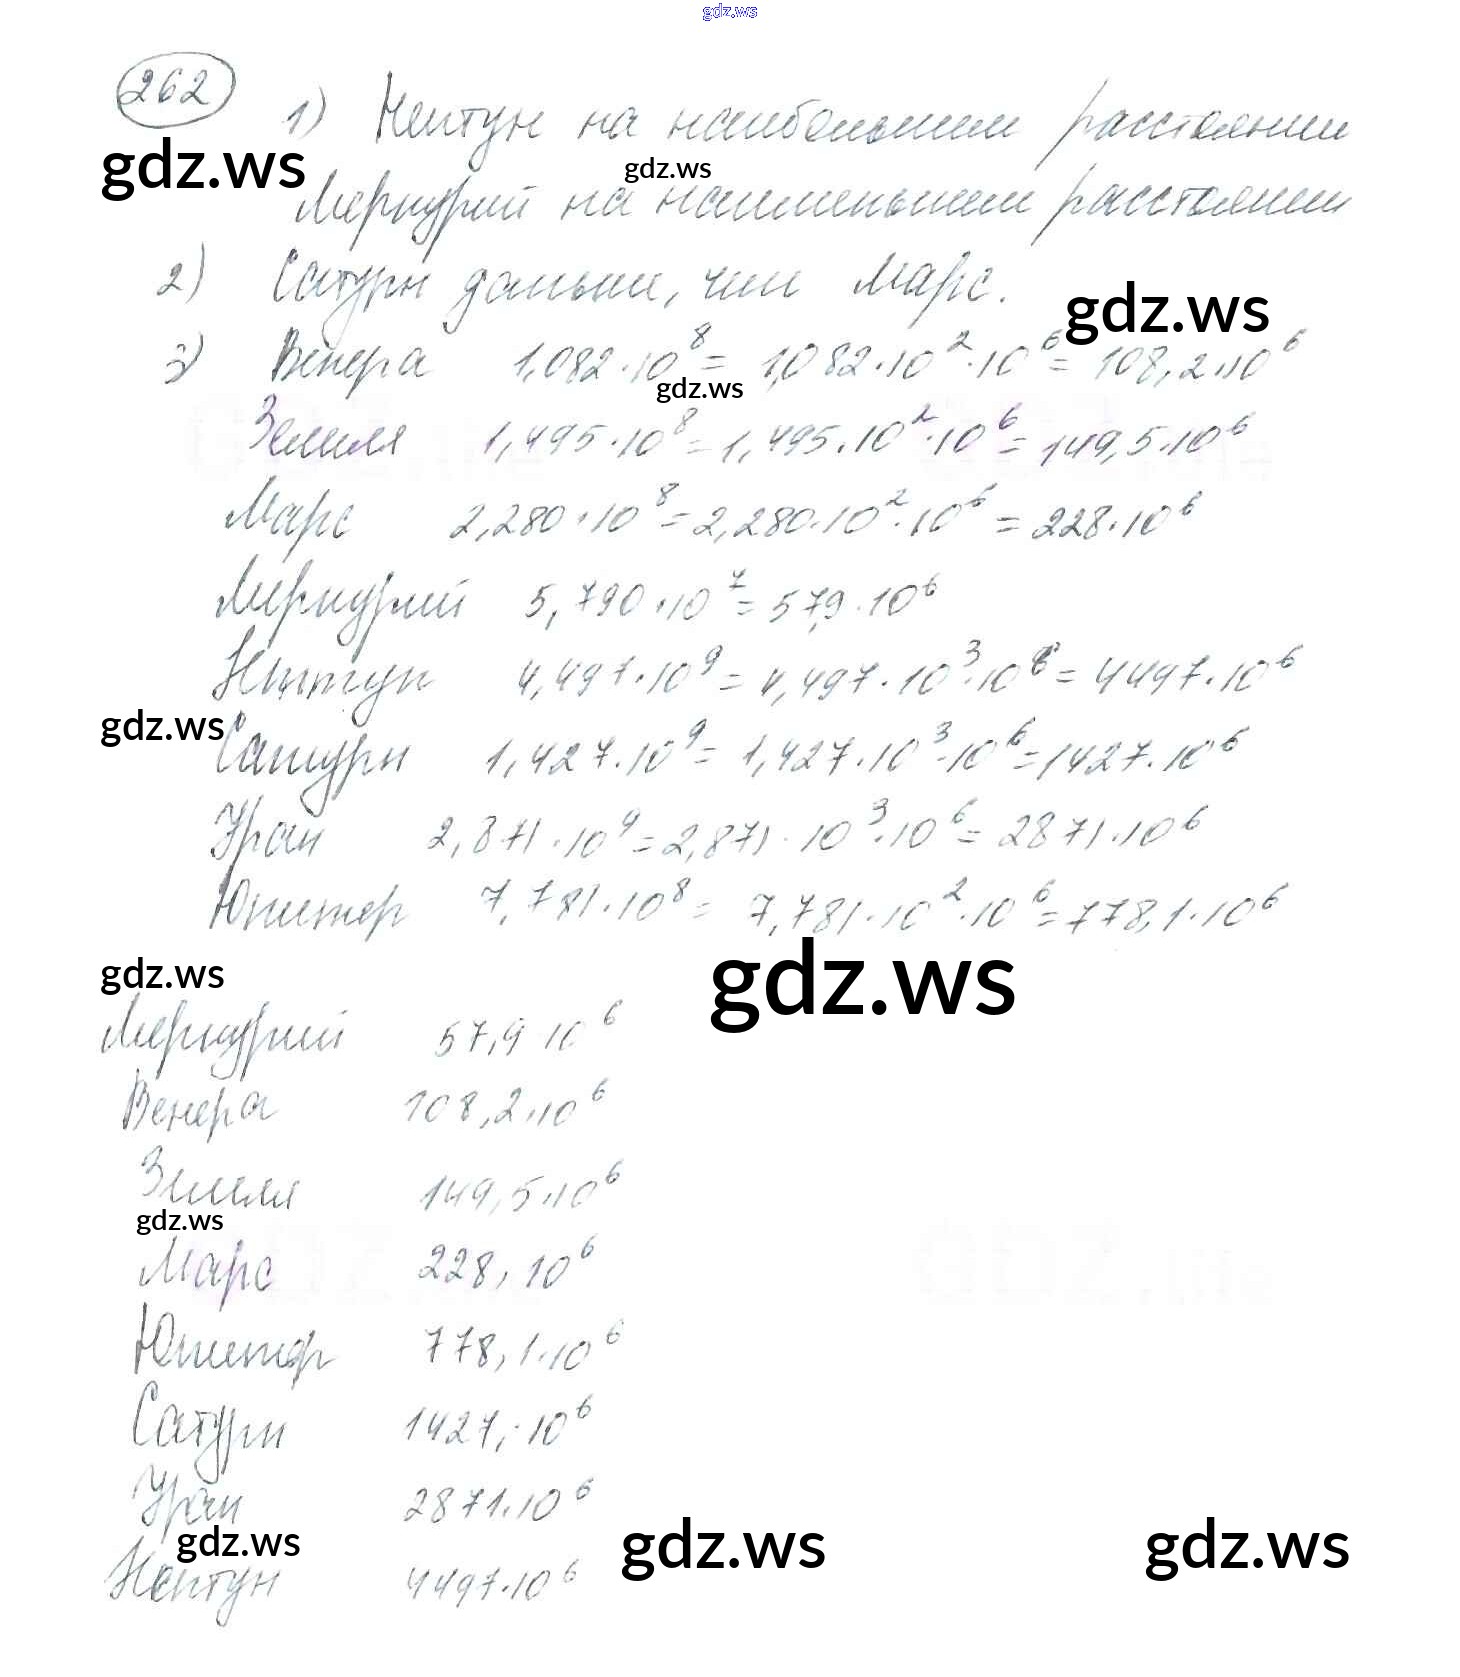 gdz.ws
262
1) Нептун на наибольшем расстоянии
gdz.ws
gdz.ws
Меркурий на наименьшем расстоянии
2) Сатурн дальше, чем Марс.
gdz.ws
3) Венера 1,082·10⁸ = 1,082·10²·10⁶ = 108,2·10⁶
gdz.ws
Земля 1,495·10⁸ = 1,495·10²·10⁶ = 149,5·10⁶
Марс 2,280·10⁸ = 2,280·10²·10⁶ = 228·10⁶
Меркурий 5,790·10⁷ = 57,9·10⁶
Нептун 4,497·10⁹ = 4,497·10³·10⁶ = 4497·10⁶
gdz.ws
Сатурн 1,427·10⁹ = 1,427·10³·10⁶ = 1427·10⁶
Уран 2,871·10⁹ = 2,871·10³·10⁶ = 2871·10⁶
Юпитер 7,781·10⁸ = 7,781·10²·10⁶ = 778,1·10⁶
gdz.ws
gdz.ws
Меркурий 57,9·10⁶
Венера 108,2·10⁶
Земля 149,5·10⁶
gdz.ws
Марс 228,·10⁶
Юпитер 778,1·10⁶
Сатурн 1427,·10⁶
Уран 2871·10⁶
gdz.ws
gdz.ws
gdz.ws
Нептун 4497·10⁶